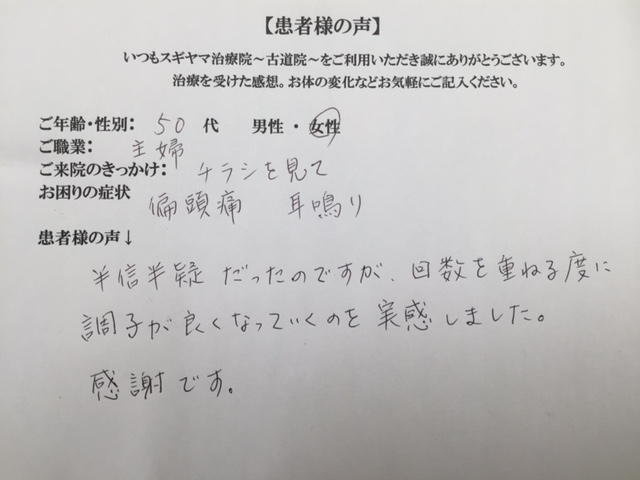 【患者様の声】
いつもスギヤマ治療院～古道院～をご利用いただき誠にありがとうございます。
治療を受けた感想。お体の変化などお気軽にご記入ください。
ご年齢・性別： 50 代 男性 ・ 女性
ご職業： 主婦
ご来院のきっかけ： チラシを見て
お困りの症状 偏頭痛 耳鳴り
患者様の声↓
半信半疑だったのですが、回数を重ねる度に
調子が良くなっていくのを実感しました。
感謝です。